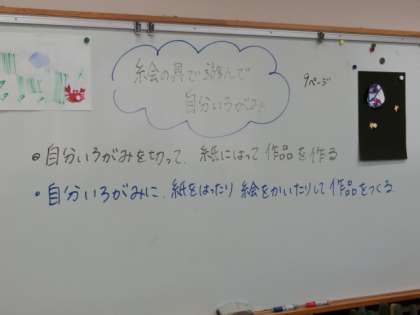 絵の具で遊んで
自分いろがみ
9ページ
自分いろがみを切って、紙にはって作品を作る
自分いろがみに、紙をはったり絵をかいたりして作品をつくる